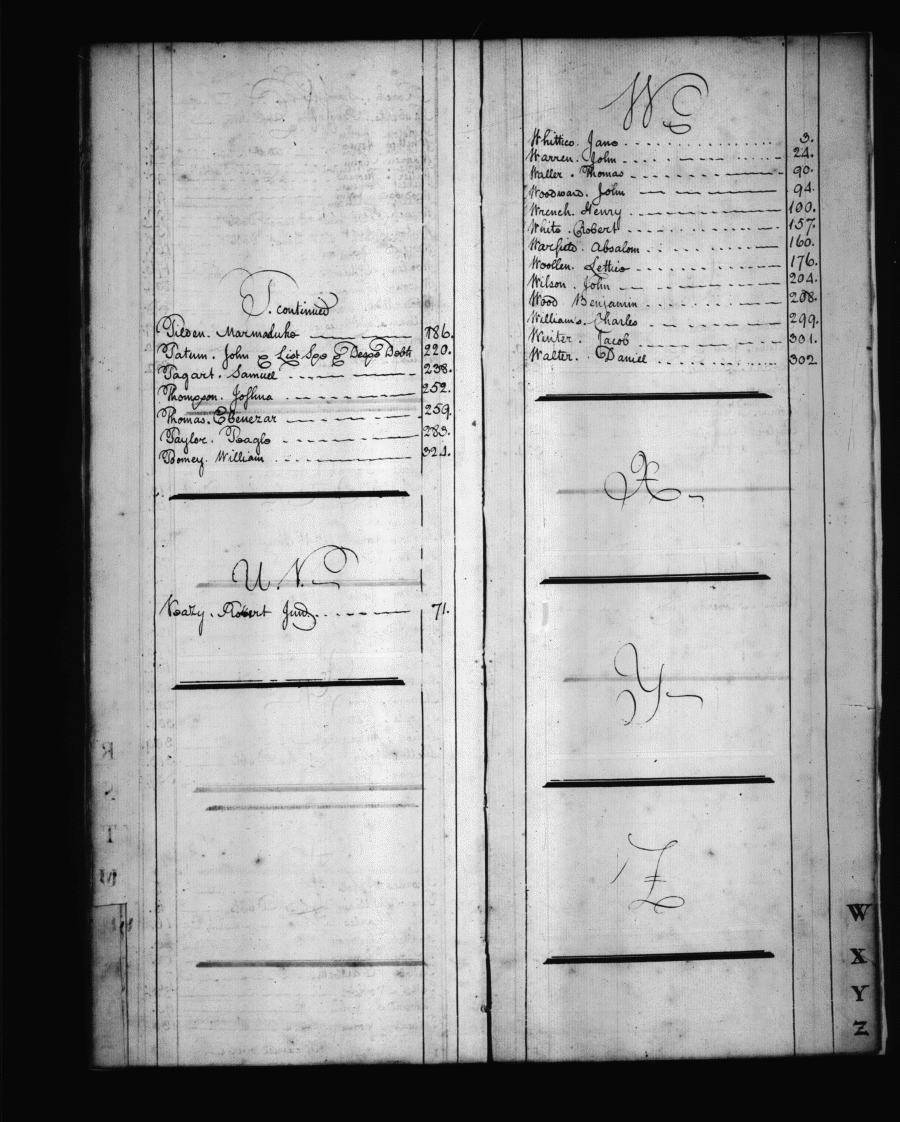 T. continued
Tilden. Marmaduke 186.
Tatum. John & List Sps & Desps Debts 220.
Tagart. Samuel 238.
Thompson. Joshua 252.
Thomas. Ebenezar 259.
Taylor. Teagle 283.
Tomey. William 321.
U V
Veazy. Robert Junr 71.
W
Whittico. Jane 3.
Warren. John 24.
Waller. Thomas 90.
Woodward. John 94.
Wrench. Henry 100.
White. Robert 157.
Warfield. Absalom 160.
Woollen. Lettice 176.
Wilson. John 204.
Wood Benjamin 208.
Williams. Charles 299.
Winter. Jacob 301.
Walter. Daniel 302
X
Y
Z
W
X
Y
Z